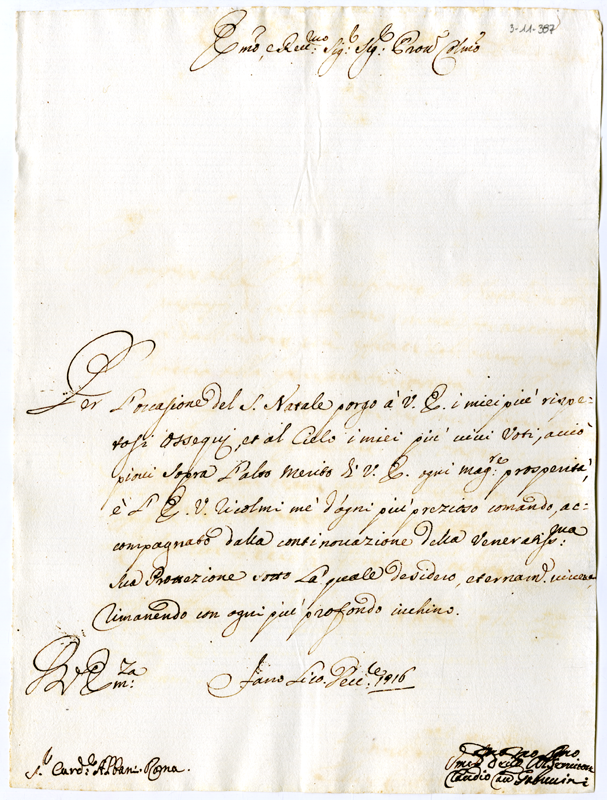 3-11-397
Em.o, e Reu.mo Sig.r Sig.r Pron Colmo
Per l'occasione del S. Natale porgo à V. E. i miei più rispe-
tosi Ossequij, et al Cielo i miei più uiui Voti, acciò
pioui sopra l'alto merito di V. E. ogni mag.re prosperità,
è l'E. V. ricolmi mè d'ogni più prezioso comando, ac-
compagnato dalla continouazione della Veneratiss.ma
sua Protezione sotto la quale desidero, eternam.e uiuere,
rimanendo con ogni più profondo inchino.
D V Em:za
Fano li Xcc.e 1716
S.r Card.l Albani Roma.
Claudio